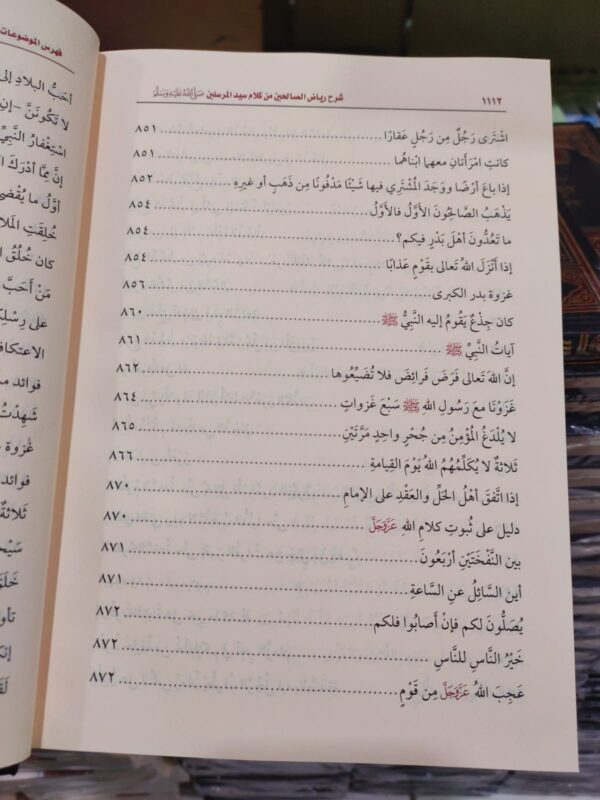 ١١١٢
شرح رياض الصالحين من كلام سيد المرسلين ﷺ
اشْتَرَى رَجُلٌ مِن رَجُلٍ عَقارًا ........ ٨٥١
كانتِ امْرَأتانِ معهما ابْناهُما ........ ٨٥١
إذا باعَ أرْضًا ووَجَدَ المُشْتَرِي فيها شَيْئًا مَدْفُونًا مِن ذَهَبٍ أو غيرِهِ ........ ٨٥٢
يَذْهَبُ الصَّالِحُونَ الأوَّلُ فالأوَّلُ ........ ٨٥٤
ما تَعُدُّونَ أهْلَ بَدْرٍ فيكم؟ ........ ٨٥٤
إذا أنْزَلَ اللهُ تَعالى بقَوْمٍ عَذابًا ........ ٨٥٤
غزوة بدر الكبرى ........ ٨٥٦
كان جِذْعٌ يَقُومُ إليه النَّبِيُّ ﷺ ........ ٨٦٠
آياتُ النَّبِيِّ ﷺ ........ ٨٦١
إنَّ اللهَ تَعالى فَرَضَ فَرائِضَ فلا تُضَيِّعُوها ........ ٨٦٢
غَزَوْنا مَعَ رَسُولِ اللهِ ﷺ سَبْعَ غَزواتٍ ........ ٨٦٤
لا يُلْدَغُ المُؤْمِنُ مِن جُحْرٍ واحِدٍ مَرَّتَيْنِ ........ ٨٦٥
ثَلاثةٌ لا يُكَلِّمُهُمُ اللهُ يَوْمَ القِيامةِ ........ ٨٦٦
إذا اتَّفَقَ أهْلُ الحَلِّ والعَقْدِ على الإمامِ ........ ٨٧٠
دليل على ثُبوتِ كلامِ اللهِ عَزَّوَجَلَّ ........ ٨٧٠
بين النَّفْخَتَيْنِ أرْبَعُونَ ........ ٨٧١
أين السَّائِلُ عنِ السَّاعةِ ........ ٨٧١
يُصَلُّونَ لكم فإنْ أصابُوا فلكم ........ ٨٧٢
خَيْرُ النَّاسِ للنَّاسِ ........ ٨٧٢
عَجِبَ اللهُ عَزَّوَجَلَّ مِن قَوْمٍ ........ ٨٧٢
فهرس الموضوعات
أحَبُّ البِلادِ إلى
لا تَكُونَنَّ -إنِ
اسْتِغْفارُ النَّبِيِّ
إنَّ مِمَّا أدْرَكَ
أوَّلُ ما يُقْضى
خُلِقَتِ
كان خُلُقُ
مَنْ أحَبَّ
على
فوائد
شَهِدْتُ
غزوة
فوائد